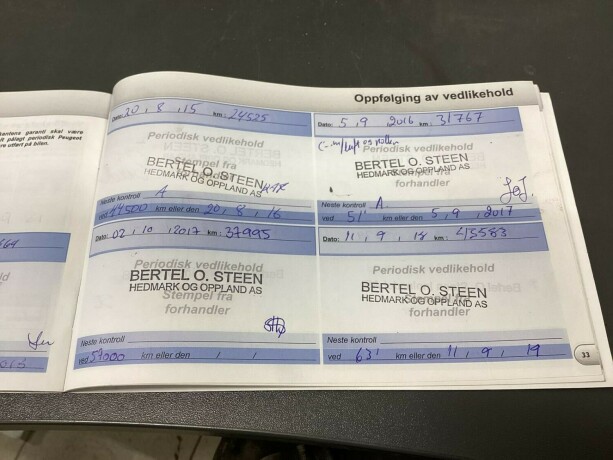 kentens garanti skal være
pålagt periodisk Peugeot
re utført på bilen.
Oppfølging av vedlikehold
Dato: 20 , 8 , 15 km: 24525
Periodisk vedlikehold
BERTEL O. STEEN
Stempel fra
HEDMARK OG OPPLAND AS
forhandler
Neste kontroll A
ved 44500 km eller den 20 , 8 , 16
Dato: 5 , 9 2016 km: 31767
BERTEL O. STEEN
HEDMARK OG OPPLAND AS
forhandler
Neste kontroll A
ved 51' km eller den 5 , 9 , 2017
Dato: 02 , 10 , 2017 km: 37995
Periodisk vedlikehold
BERTEL O. STEEN
HEDMARK OG OPPLAND AS
Stempel fra
forhandler
Neste kontroll
ved 57000 km eller den / /
Dato: 11 , 9 , 18 km: 45583
Periodisk vedlikehold
BERTEL O. STEEN
HEDMARK OG OPPLAND AS
forhandler
Neste kontroll
ved 63' km eller den 11 , 9 , 19
33